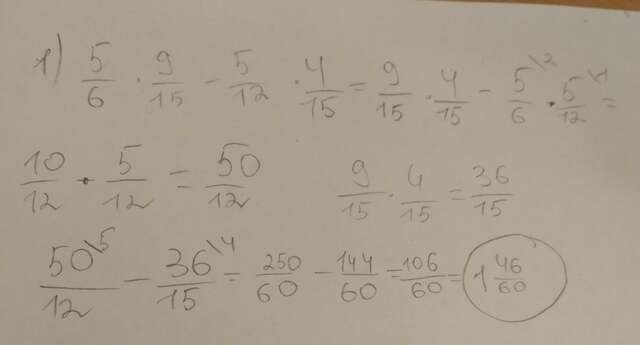 1) 5/6 · 9/15 - 5/12 · 4/15 = 9/15 · 4/15 - 5/6 \2 · 5/12 \1 =
10/12 · 5/12 = 50/12    9/15 · 4/15 = 36/15
50/12 \5 - 36/15 \4 = 250/60 - 144/60 = 106/60 = 1 46/60